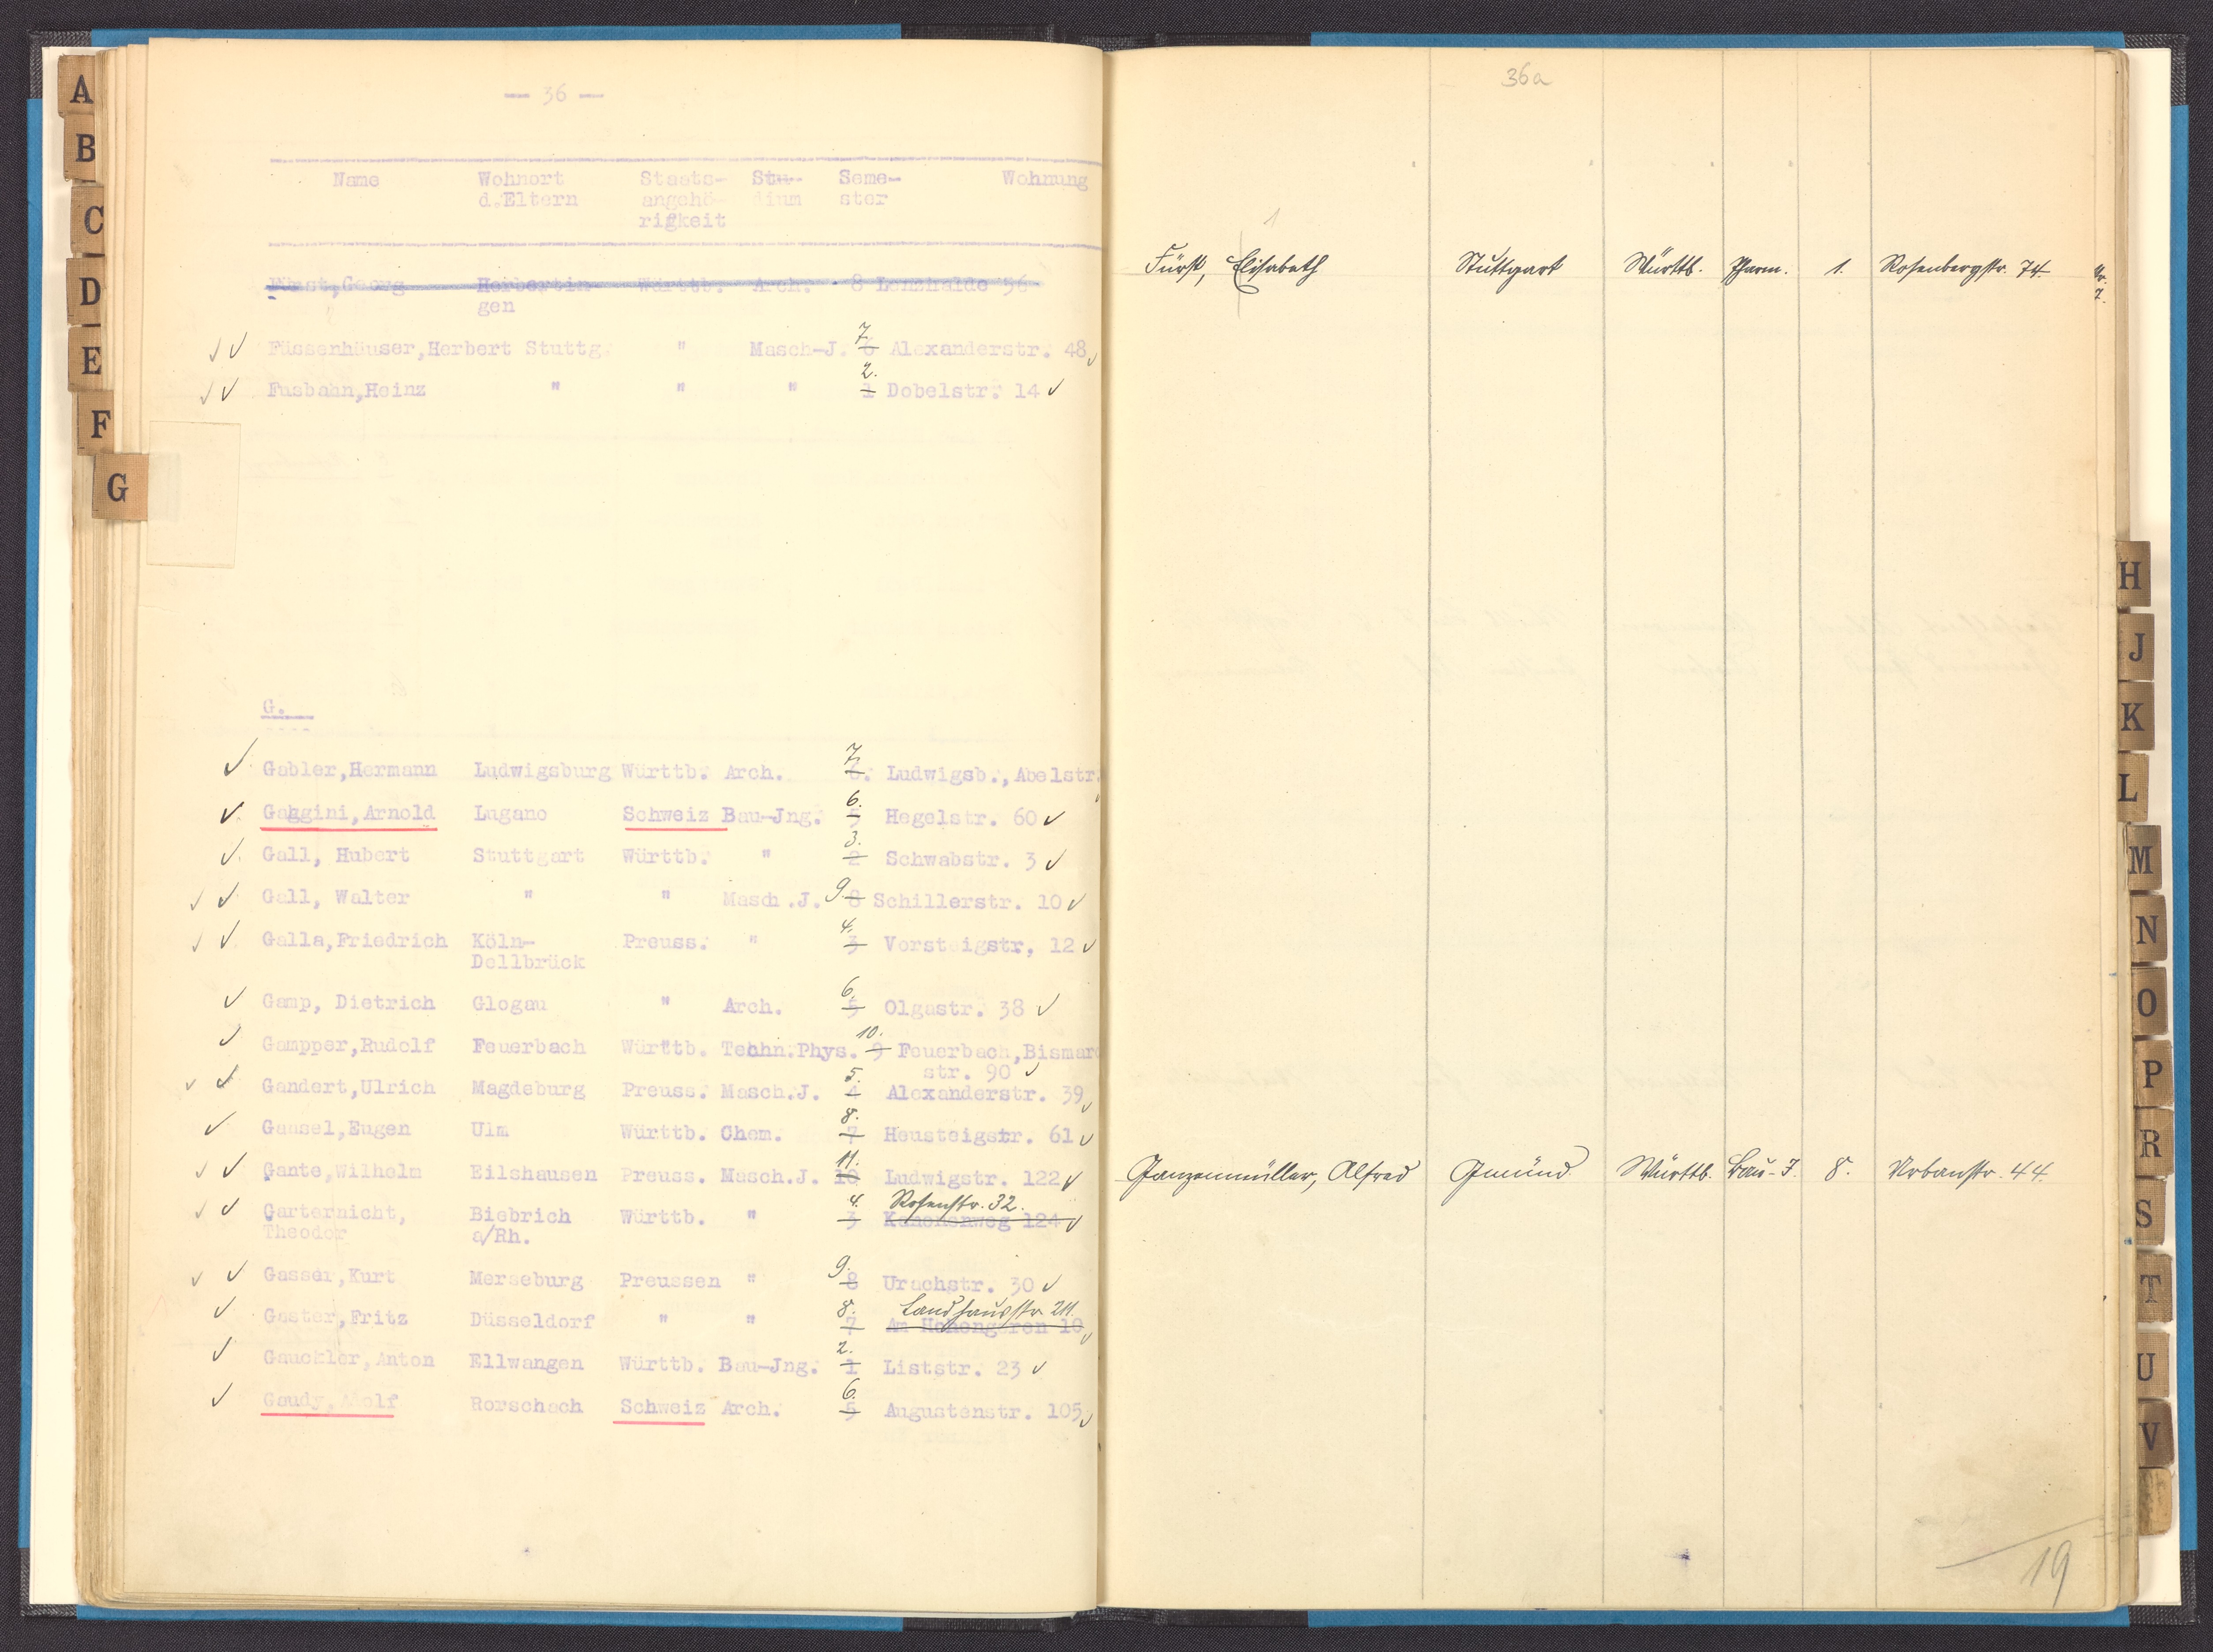 A
B
C
D
E
F
G
— 36 —
Name Wohnort Staats- Stu- Seme- Wohnung
d.Eltern angehö- dium ster
rigkeit
Georg Herbertin- Württb. Arch. 8 Lenzhalde 56
gen
7.
Füssenhäuser,Herbert Stuttg. " Masch-J. 6 Alexanderstr. 48
2.
Fusbahn,Heinz " " " 1 Dobelstr. 14
G.
7.
Gabler,Hermann Ludwigsburg Württb. Arch. 6. Ludwigsb.,Abelstr.
6.
Gaggini,Arnold Lugano Schweiz Bau-Jng. 5 Hegelstr. 60
3.
Gall, Hubert Stuttgart Württb. " 2 Schwabstr. 3
Gall, Walter " " Masch.J. 9. 8 Schillerstr. 10
4.
Galla,Friedrich Köln- Preuss. " 3 Vorsteigstr, 12
Dellbrück
6.
Gamp, Dietrich Glogau " Arch. 5 Olgastr. 38
10.
Gampper,Rudolf Feuerbach Württb. Techn.Phys. 9 Feuerbach,Bismar
str. 90
5.
Gandert,Ulrich Magdeburg Preuss. Masch.J. 4 Alexanderstr. 39
8.
Gansel,Eugen Ulm Württb. Chem. 7 Heusteigstr. 61
11.
Gante,Wilhelm Eilshausen Preuss. Masch.J. 10 Ludwigstr. 122
4. Rosenstr. 32.
Garternicht, Biebrich Württb. " 3 Kanonenweg 124
Theodor a/Rh.
9.
Gasser,Kurt Merseburg Preussen " 8 Urachstr. 30
8. Landhausstr. 211.
Gaster,Fritz Düsseldorf " " 7 Am Hohengeren 10
2.
Gauckler,Anton Ellwangen Württb. Bau-Jng. 1 Liststr. 23
6.
Gaudy,Adolf Rorschach Schweiz Arch. 5 Augustenstr. 105
36a
1
Fürst, Elisabeth Stuttgart Württb. Pharm. 1. Rosenbergstr. 74.
Ganzenmüller, Alfred Gmünd Württb. Bau-J. 8. Urbanstr. 44.
19
H
J
K
L
M
N
O
P
R
S
T
U
V